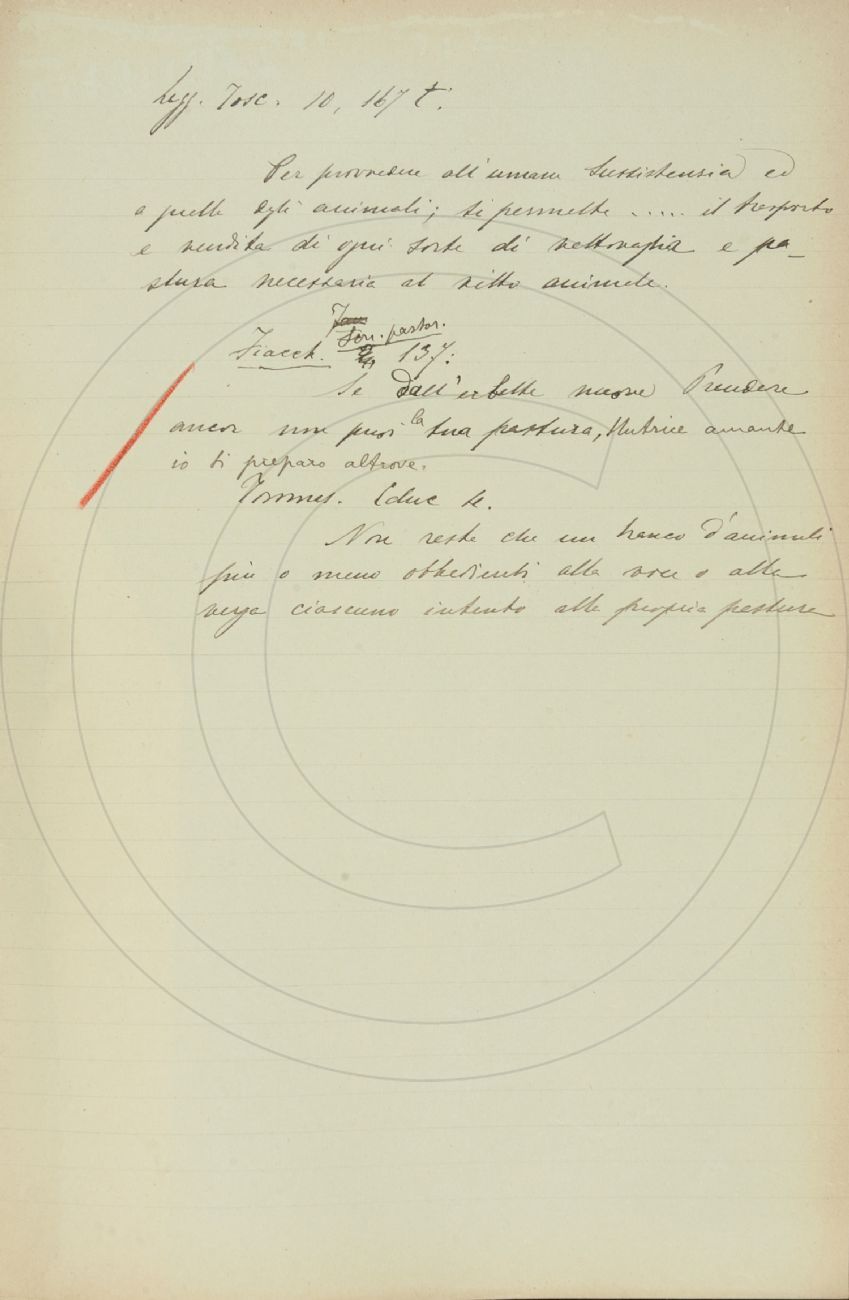 Legg. Tosc. 10, 167 t.
Per provvedere all'umana sussistensia ed
a quella degli animali; si permette ..... il trasporto
e vendita di ogni sorte di vettovaglia e pa_
stura necessaria al vitto animale.
pastor.
Fiacch. 137:
Se dall'erbette nuove Prendere
ancor non puoi la tua pastura, Nutrice amante
io ti preparo altrove.
Tommas. Educ 4.
Non reste che un branco d'animali
più o meno obbedienti alla voce o alla
verga ciascuno intento alla propria pastura